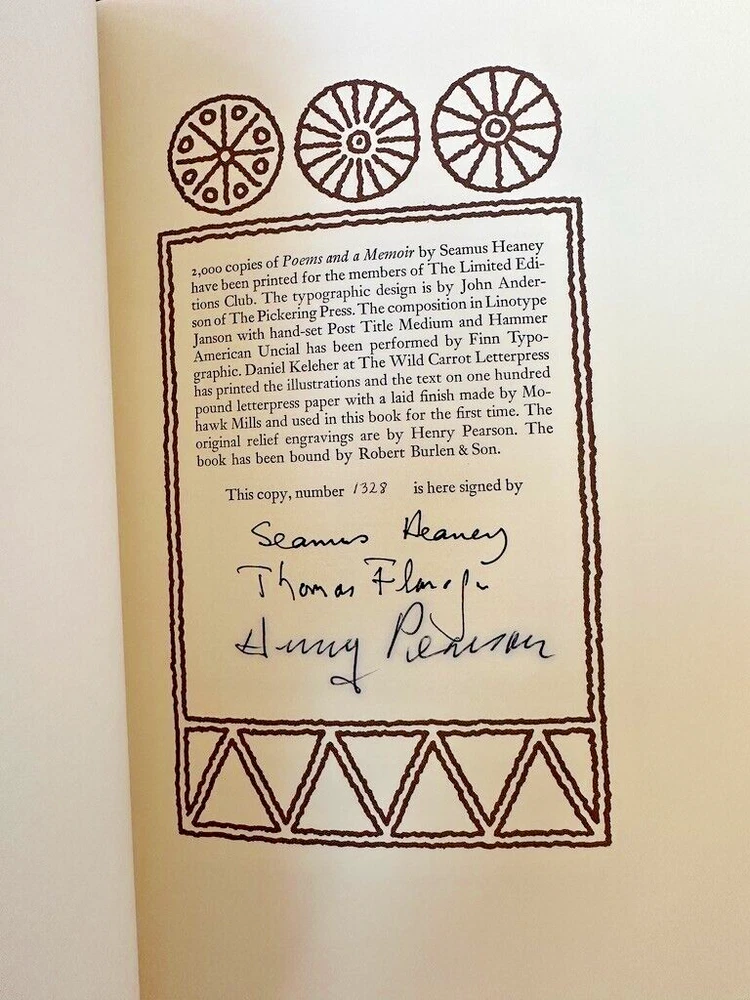 2,000 copies of Poems and a Memoir by Seamus Heaney
have been printed for the members of The Limited Edi-
tions Club. The typographic design is by John Ander-
son of The Pickering Press. The composition in Linotype
Janson with hand-set Post Title Medium and Hammer
American Uncial has been performed by Finn Typo-
graphic. Daniel Keleher at The Wild Carrot Letterpress
has printed the illustrations and the text on one hundred
pound letterpress paper with a laid finish made by Mo-
hawk Mills and used in this book for the first time. The
original relief engravings are by Henry Pearson. The
book has been bound by Robert Burlen & Son.
This copy, number 1328 is here signed by
Seamus Heaney
Thomas Flanagan
Henry Pearson